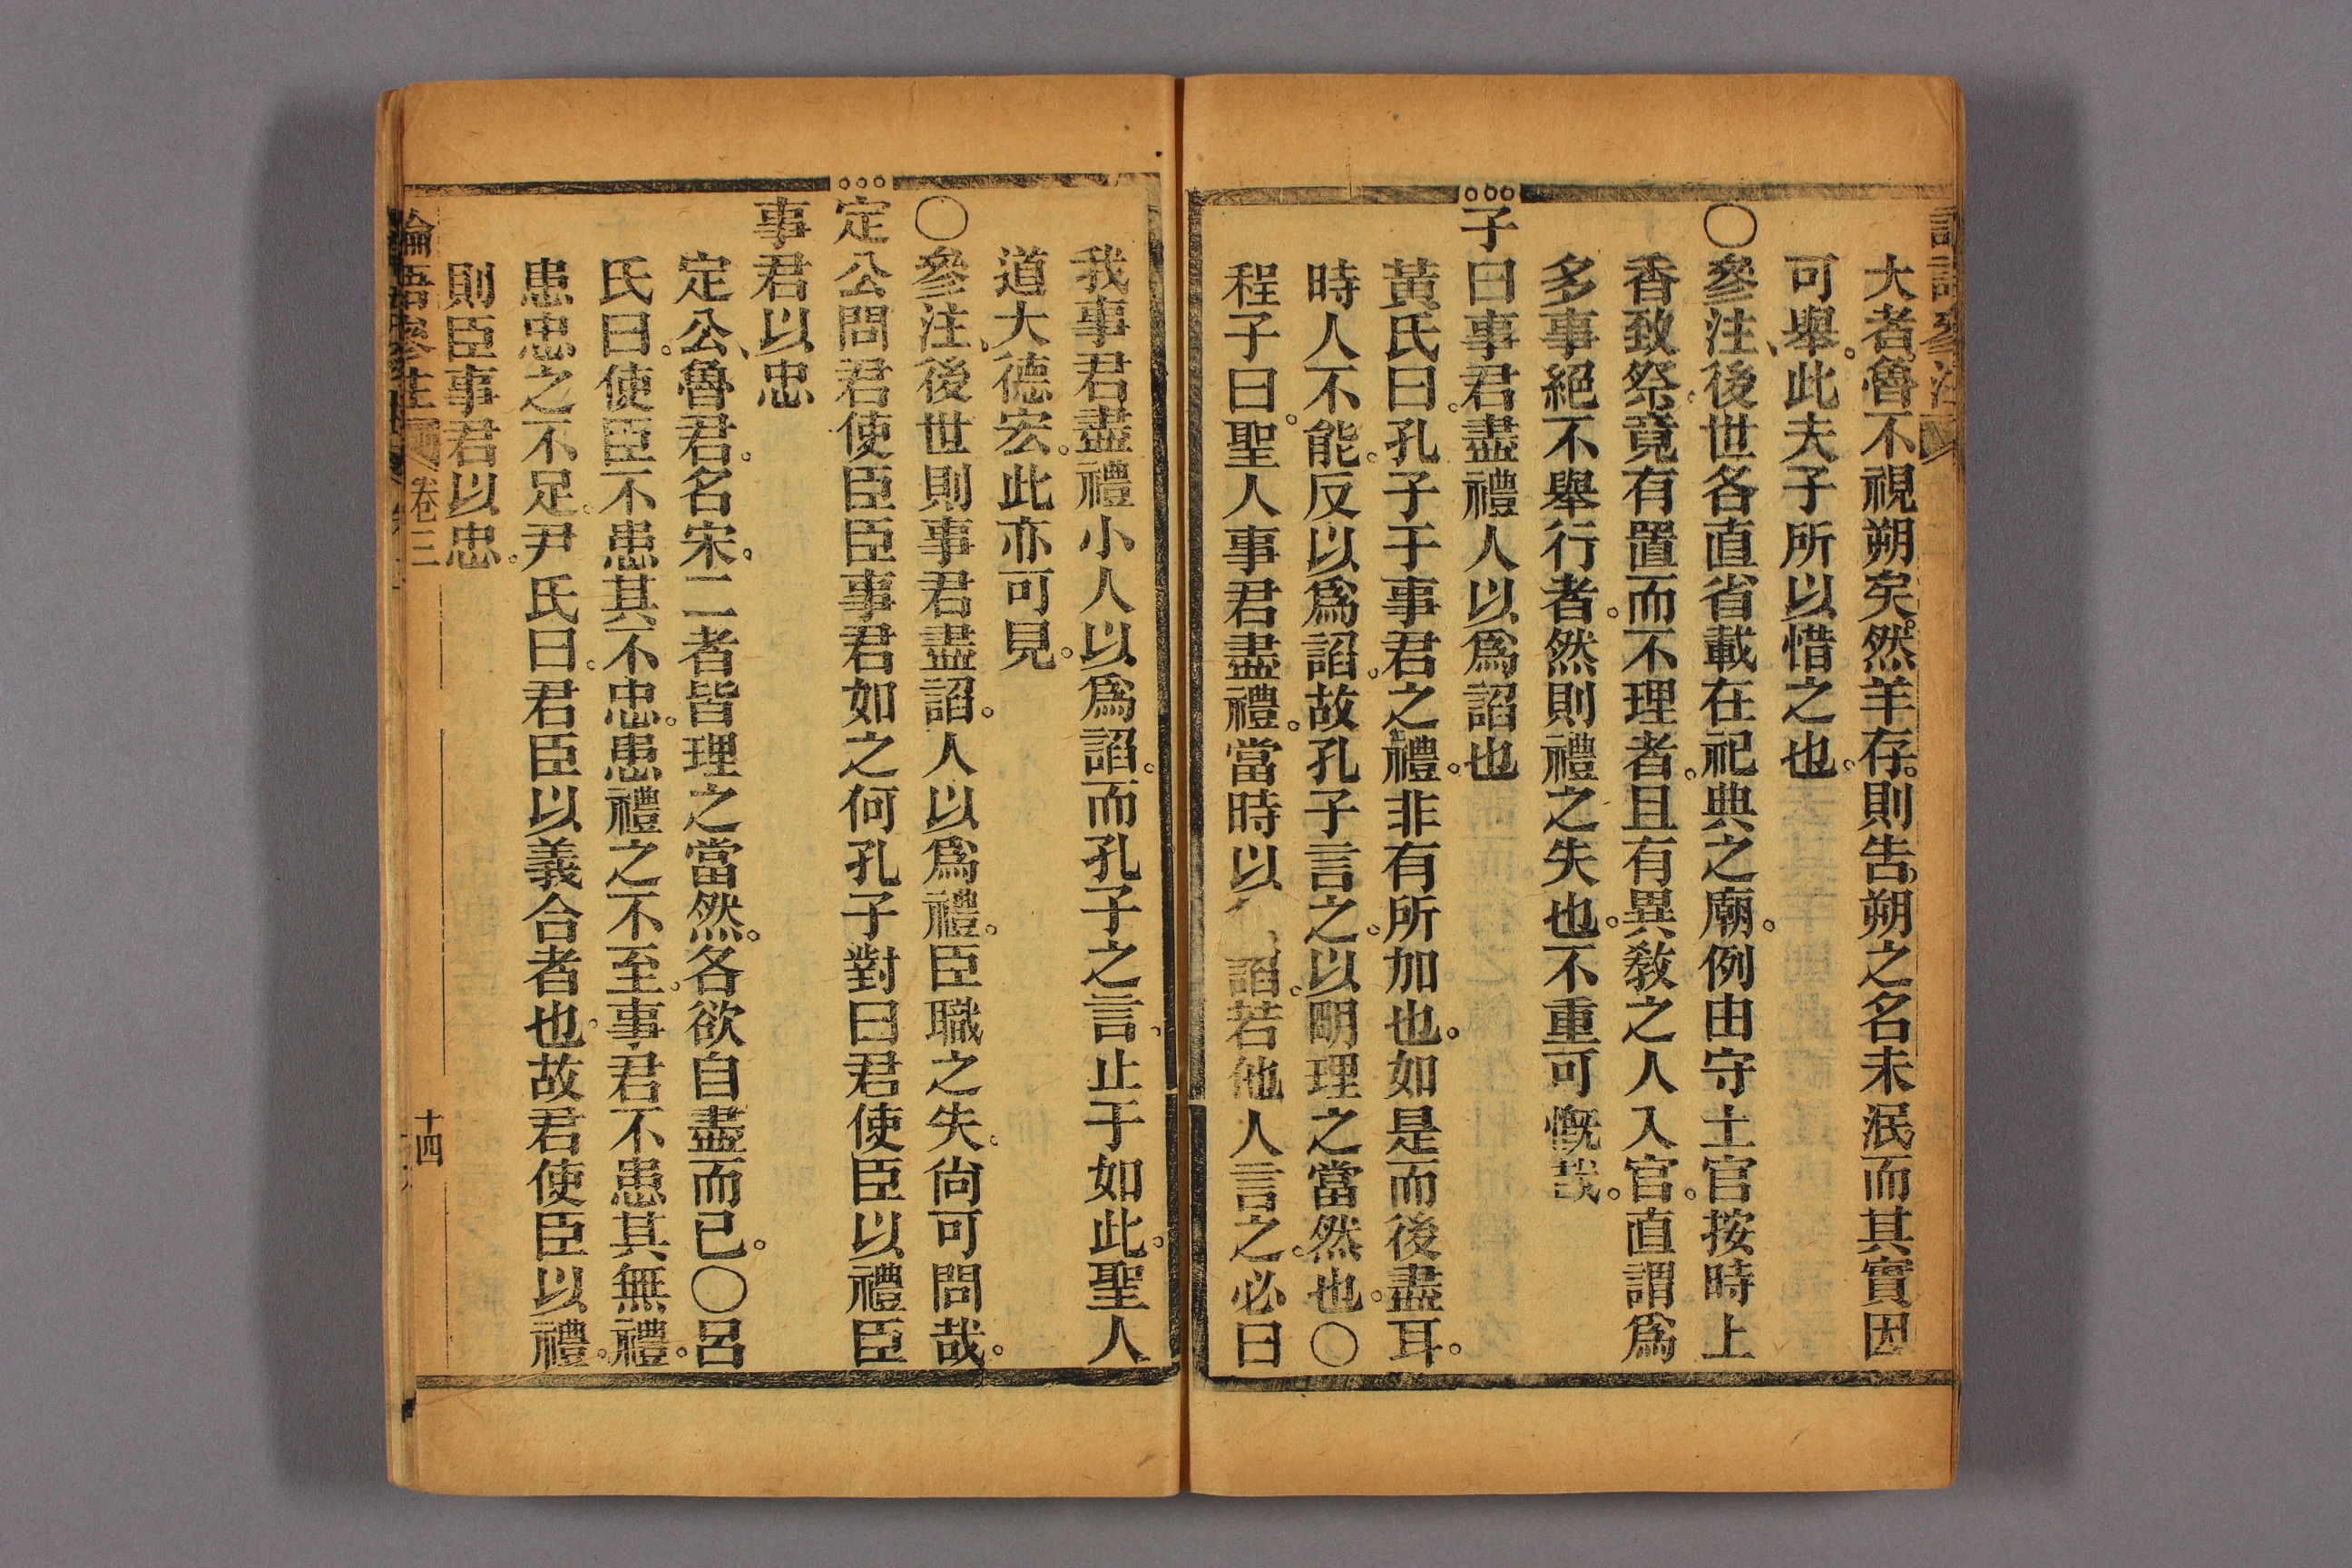 大者魯不視朔矣然羊存則告朔之名未泯而其實因
可舉。此夫子所以惜之也。
〇參注、後世各直省載在祀典之廟。例由守土官按時上
香致祭。竟有置而不理者。且有異敎之人入官。直謂爲
多事絕不舉行者。然則禮之失也。不重可慨哉。
子曰事君盡禮人以爲諂也
黃氏曰。孔子于事君之禮。非有所加也。如是而後盡耳。
時人不能。反以爲諂。故孔子言之。以明理之當然也。〇
程子曰。聖人事君盡禮。當時以諂。若他人言之。必曰
我事君盡禮小人以爲諂。而孔子之言、止于如此。聖人
道大德宏。此亦可見。
〇參注、後世則事君盡諂。人以爲禮。臣職之失。尙可問哉。
定公問君使臣臣事君如之何孔子對曰君使臣以禮臣
事君以忠
定公、魯君。名宋。二者皆理之當然。各欲自盡而已。〇呂
氏曰。使臣不患其不忠。患禮之不至。事君不患其無禮。
患忠之不足。尹氏曰。君臣以義合者也。故君使臣以禮。
則臣事君以忠。
論語參注 卷三 十四